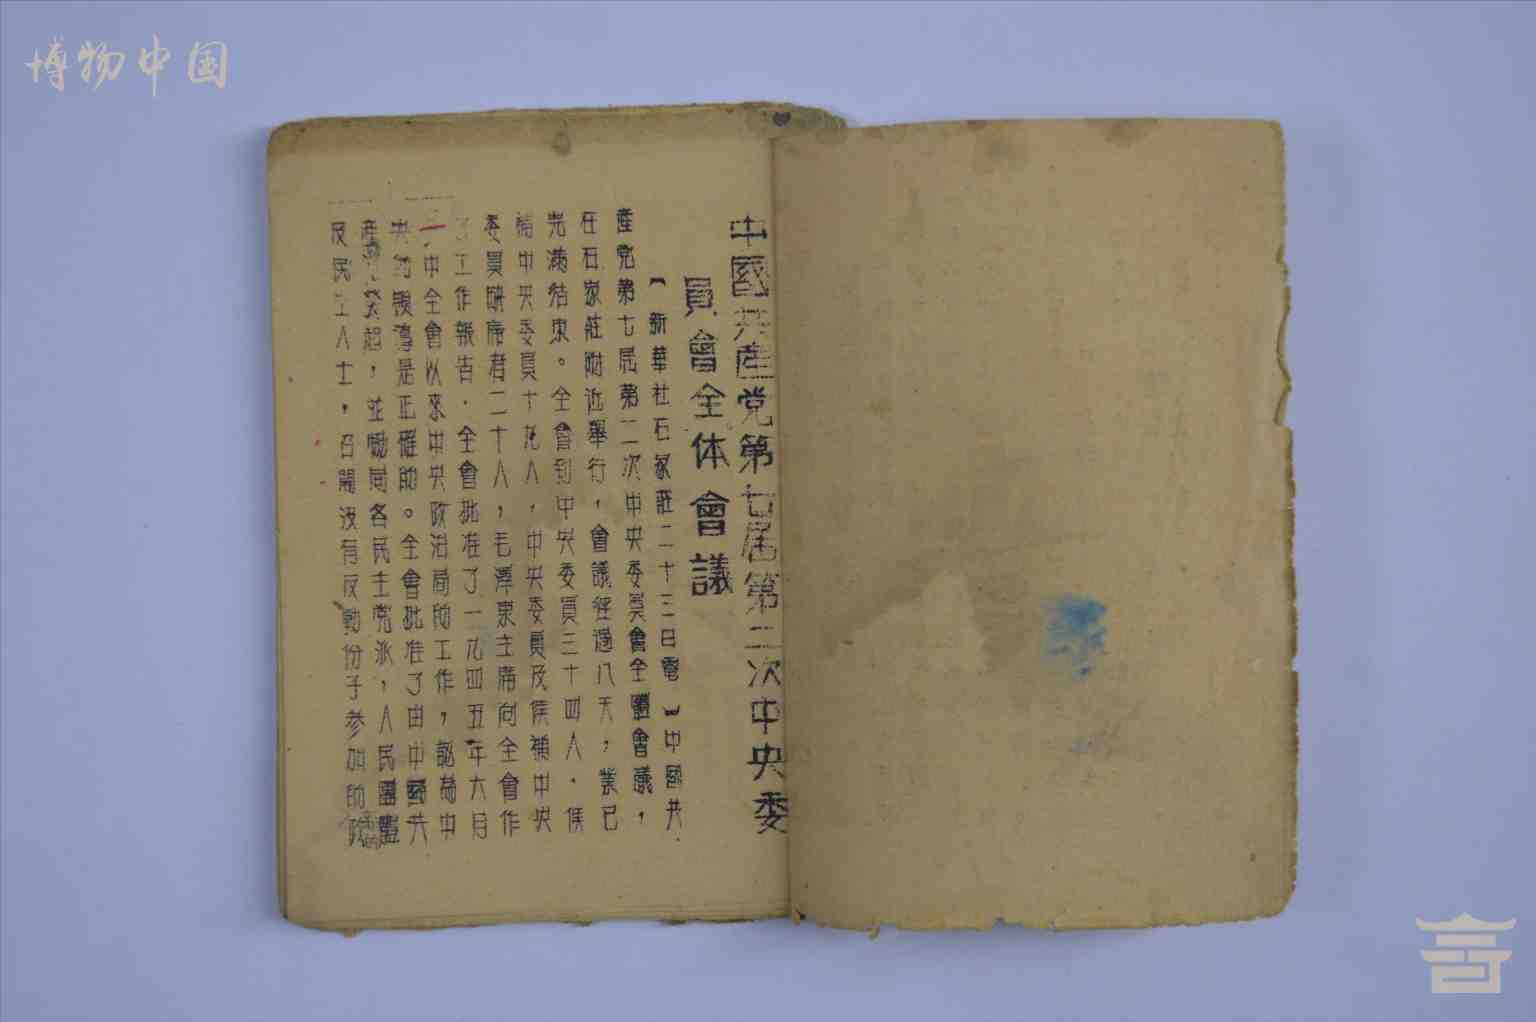 博物中国
中國共產党第七届第二次中央委
員會全体會議
【新華社石家莊二十三日電】中國共
產党第七届第二次中央委員會全體會議，
在石家莊附近舉行，會議經過八天，業已
完滿結束。全會到中央委員三十四人，候
補中央委員十九人，中央委員及候補中央
委員缺席者二十人，毛澤東主席向全會作
了工作報告．全會批准了一九四五年六月
一中全會以來中央政治局的工作，認為中
央的領導是正確的。全會批准了由中國共
產党發起，並協同各民主党派，人民團體
及民主人士，召開沒有反動份子參加的政